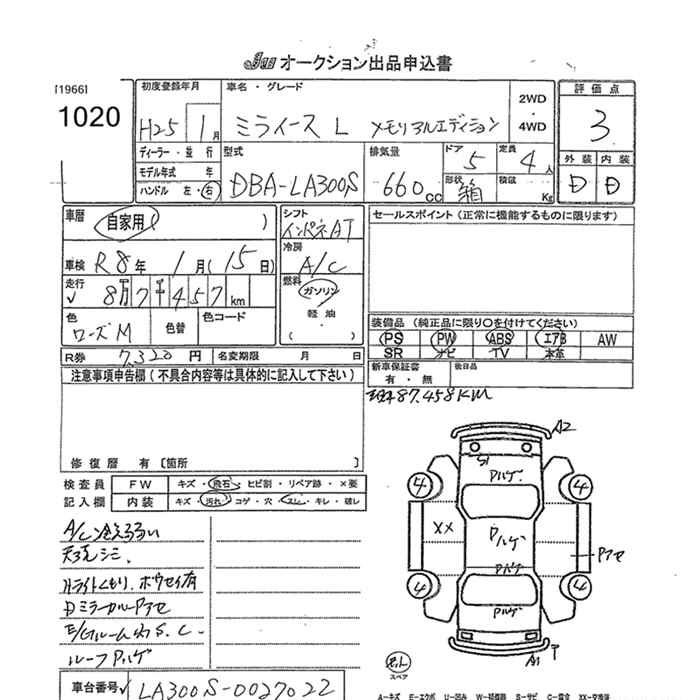 JU オークション出品申込書
[1966]
1020
初度登録年月
H25 1月
車名・グレード
ミライース L メモリアルエディション
2WD
4WD
評価点
3
外装 内装
D D
ディーラー・並行
モデル年式 年
ハンドル 左・右
型式
DBA-LA300S
排気量
660cc
ドア
5
定員
4人
形状
箱
積載
Kg
車歴
自家用( )
車検 R8年 1月(15日)
走行
8万7千457km
色
ローズM
色替
色コード
R券 7,320円
名変期限 月 日
シフト
インパネAT
冷房
A/C
燃料
ガソリン
軽油
( )
セールスポイント(正常に機能するものに限ります)
装備品(純正品に限り○を付けてください)
PS PW ABS エアB AW
SR ナビ TV 本革
新車保証書
有・無
後日品
87,458KM
注意事項申告欄(不具合内容等は具体的に記入して下さい)
修復歴 有[箇所 ]
検査員
記入欄
FW キズ・飛石・ヒビ割・リペア跡・×要
内装 キズ・汚れ・コゲ・穴・スレ・キレ・破レ
A/C冷えるい
天張シミ
ライトくもり、ボウセイ有
Dミラーカバーアセ
E/Gルーム内S.C.
ルーフPハゲ
車台番号 LA300S-0027022
A2
S1
Pハゲ
4 4
XX
Pハゲ
Pアセ
Pハゲ
4 4
Pハゲ
A1 T
スペア
A-キズ E-エクボ U-凹み W-補修跡 S-サビ C-腐食 XX-交換済